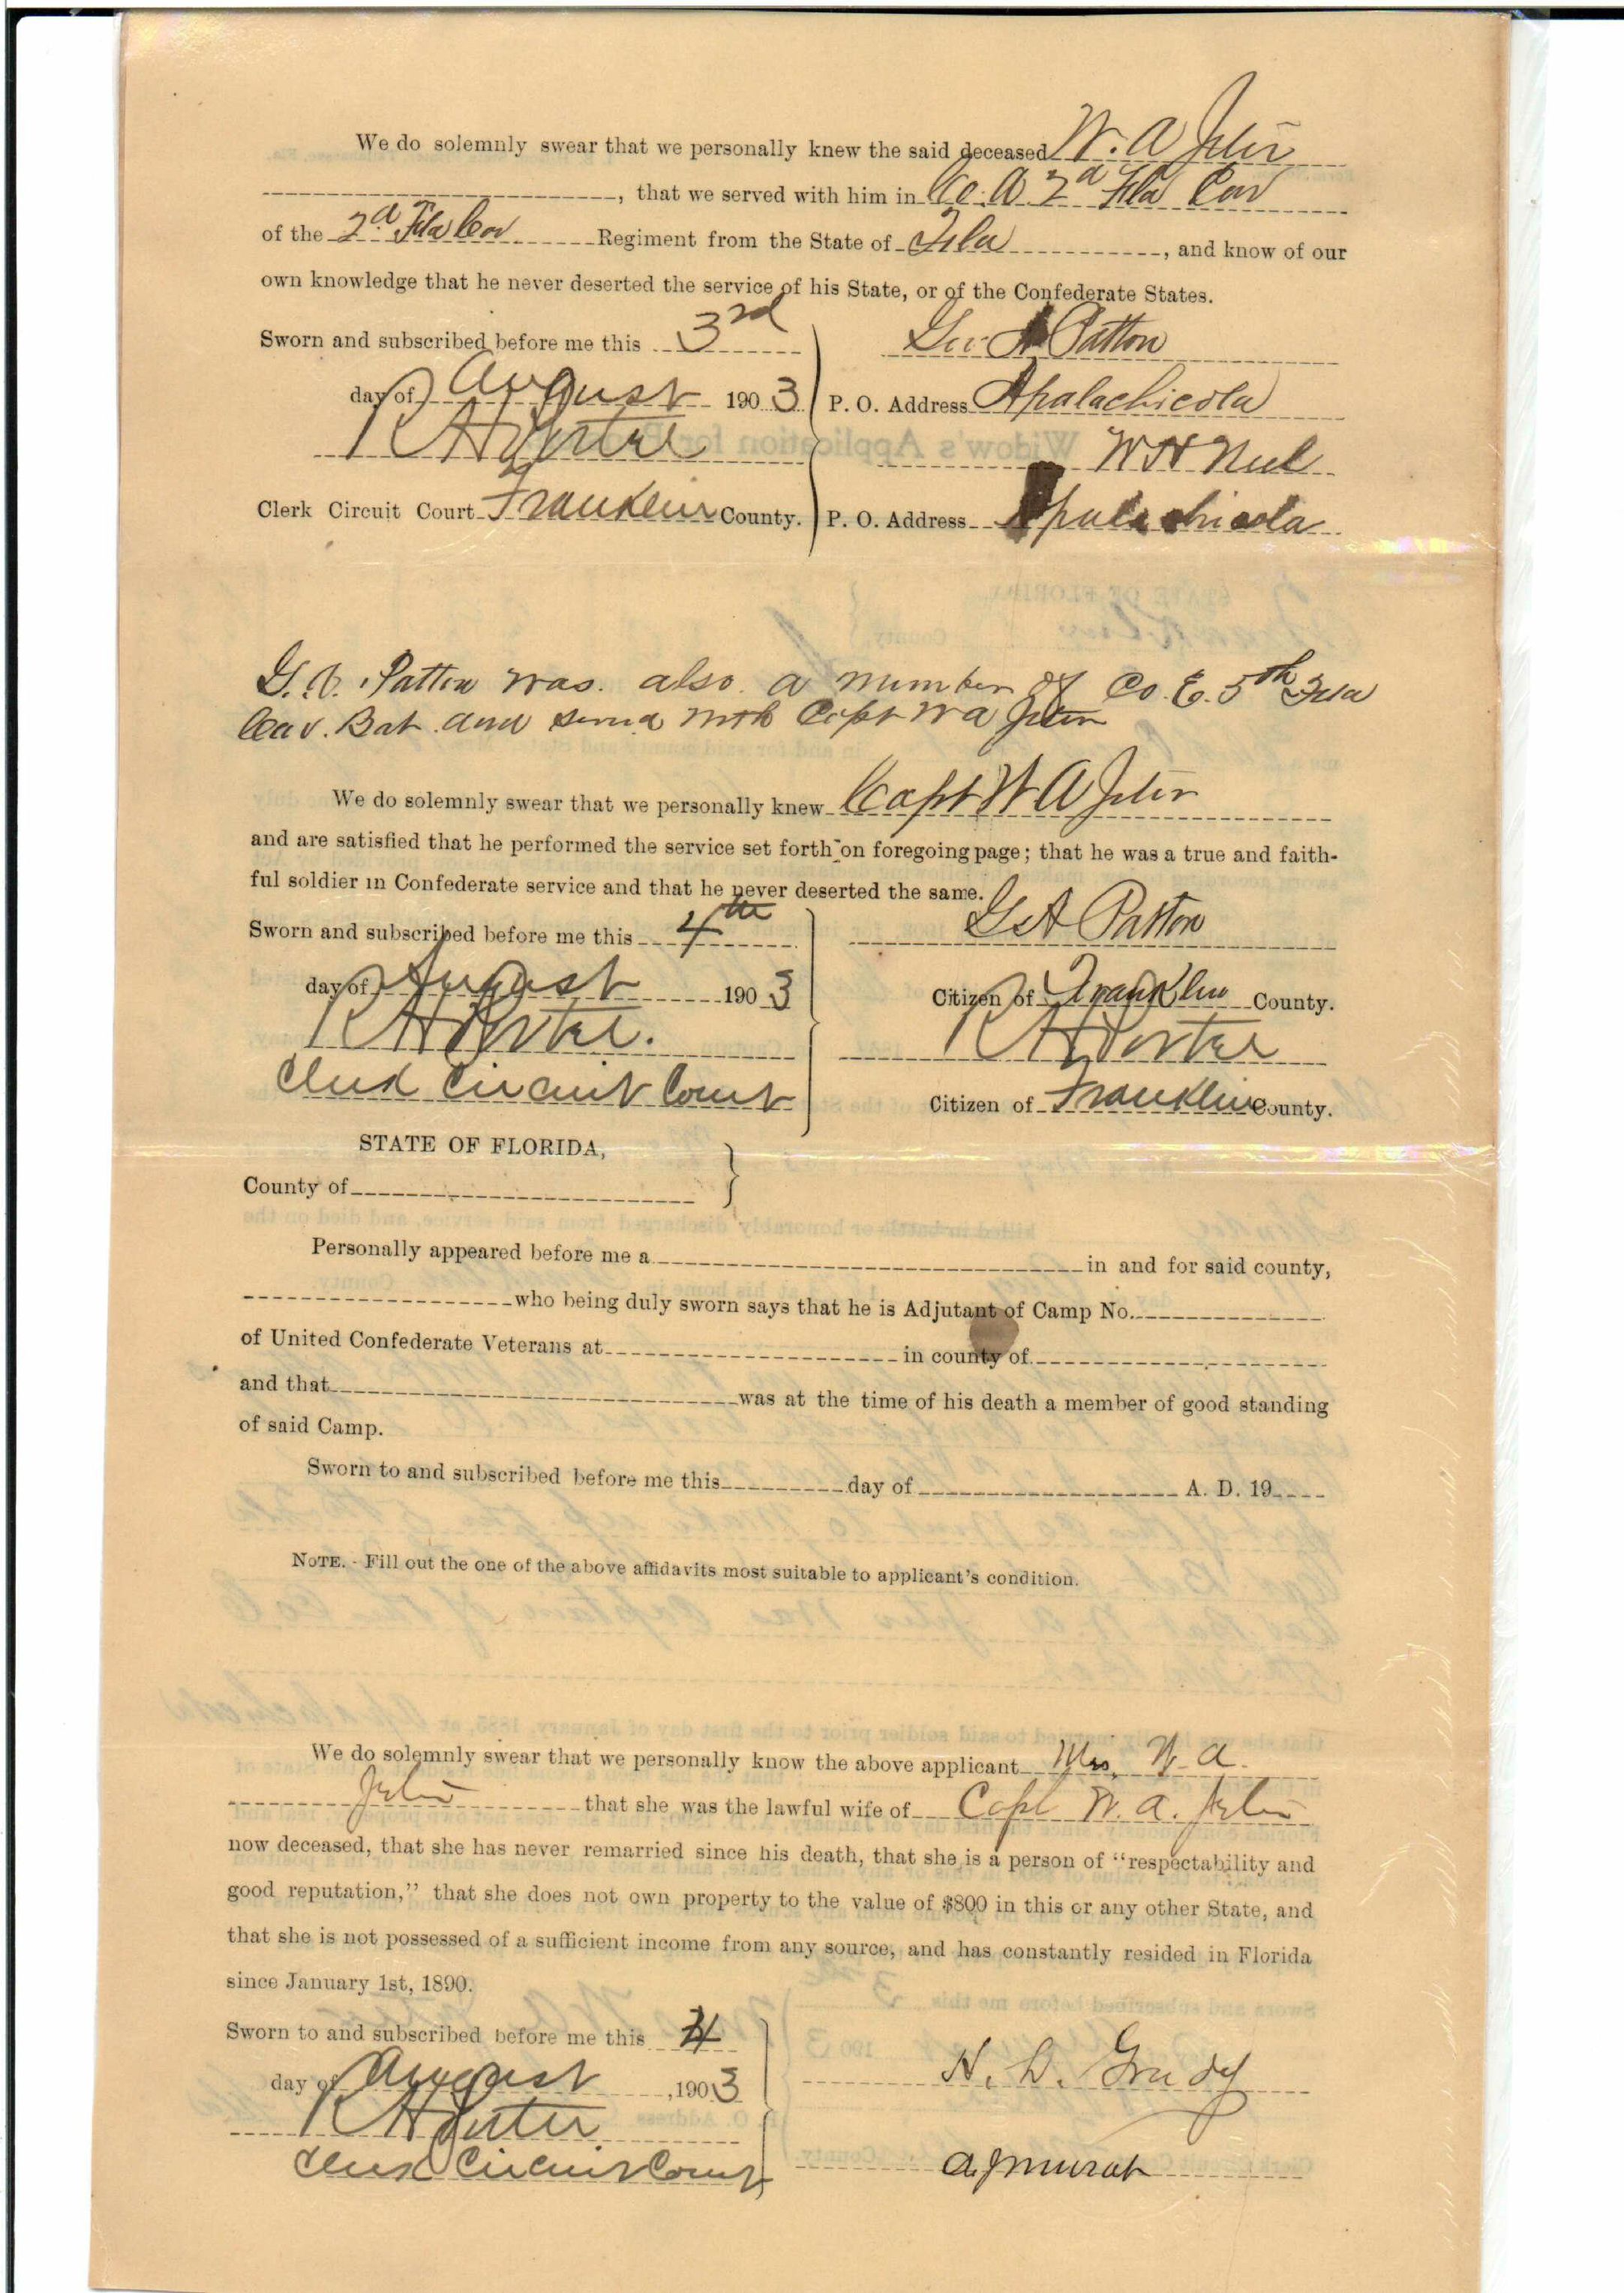 We do solemnly swear that we personally knew the said deceased W. A Jeter
, that we served with him in Co. A 2d Fla Cav
of the 2d Fla Cav Regiment from the State of Fla, and know of our
own knowledge that he never deserted the service of his State, or of the Confederate States.
Sworn and subscribed before me this 3rd
day of August 1903
R H Porter
Clerk Circuit Court Franklin County.
Geo A Patton
P. O. Address Apalachicola
W H Neel
P. O. Address Apalachicola
G. A. Patton was also a member of Co. E. 5th Fla
Cav. Bat. and served with Capt W A Jeter
We do solemnly swear that we personally knew Capt W A Jeter
and are satisfied that he performed the service set forth on foregoing page; that he was a true and faith-
ful soldier in Confederate service and that he never deserted the same.
Sworn and subscribed before me this 4th
day of August 1903
R H Porter.
Clerk Circuit Court
G A Patton
Citizen of Franklin County.
R H Porter
Citizen of Franklin County.
STATE OF FLORIDA,
County of
Personally appeared before me a in and for said county,
who being duly sworn says that he is Adjutant of Camp No.
of United Confederate Veterans at in county of
and that was at the time of his death a member of good standing
of said Camp.
Sworn to and subscribed before me this day of A. D. 19
NOTE. - Fill out the one of the above affidavits most suitable to applicant's condition.
We do solemnly swear that we personally know the above applicant Mrs. W. A.
Jeter that she was the lawful wife of Capt W. A. Jeter
now deceased, that she has never remarried since his death, that she is a person of "respectability and
good reputation," that she does not own property to the value of $800 in this or any other State, and
that she is not possessed of a sufficient income from any source, and has constantly resided in Florida
since January 1st, 1890.
Sworn to and subscribed before me this 4
day of August, 1903
R H Porter
Clerk Circuit Court
H. L. Grady
A. J Murat